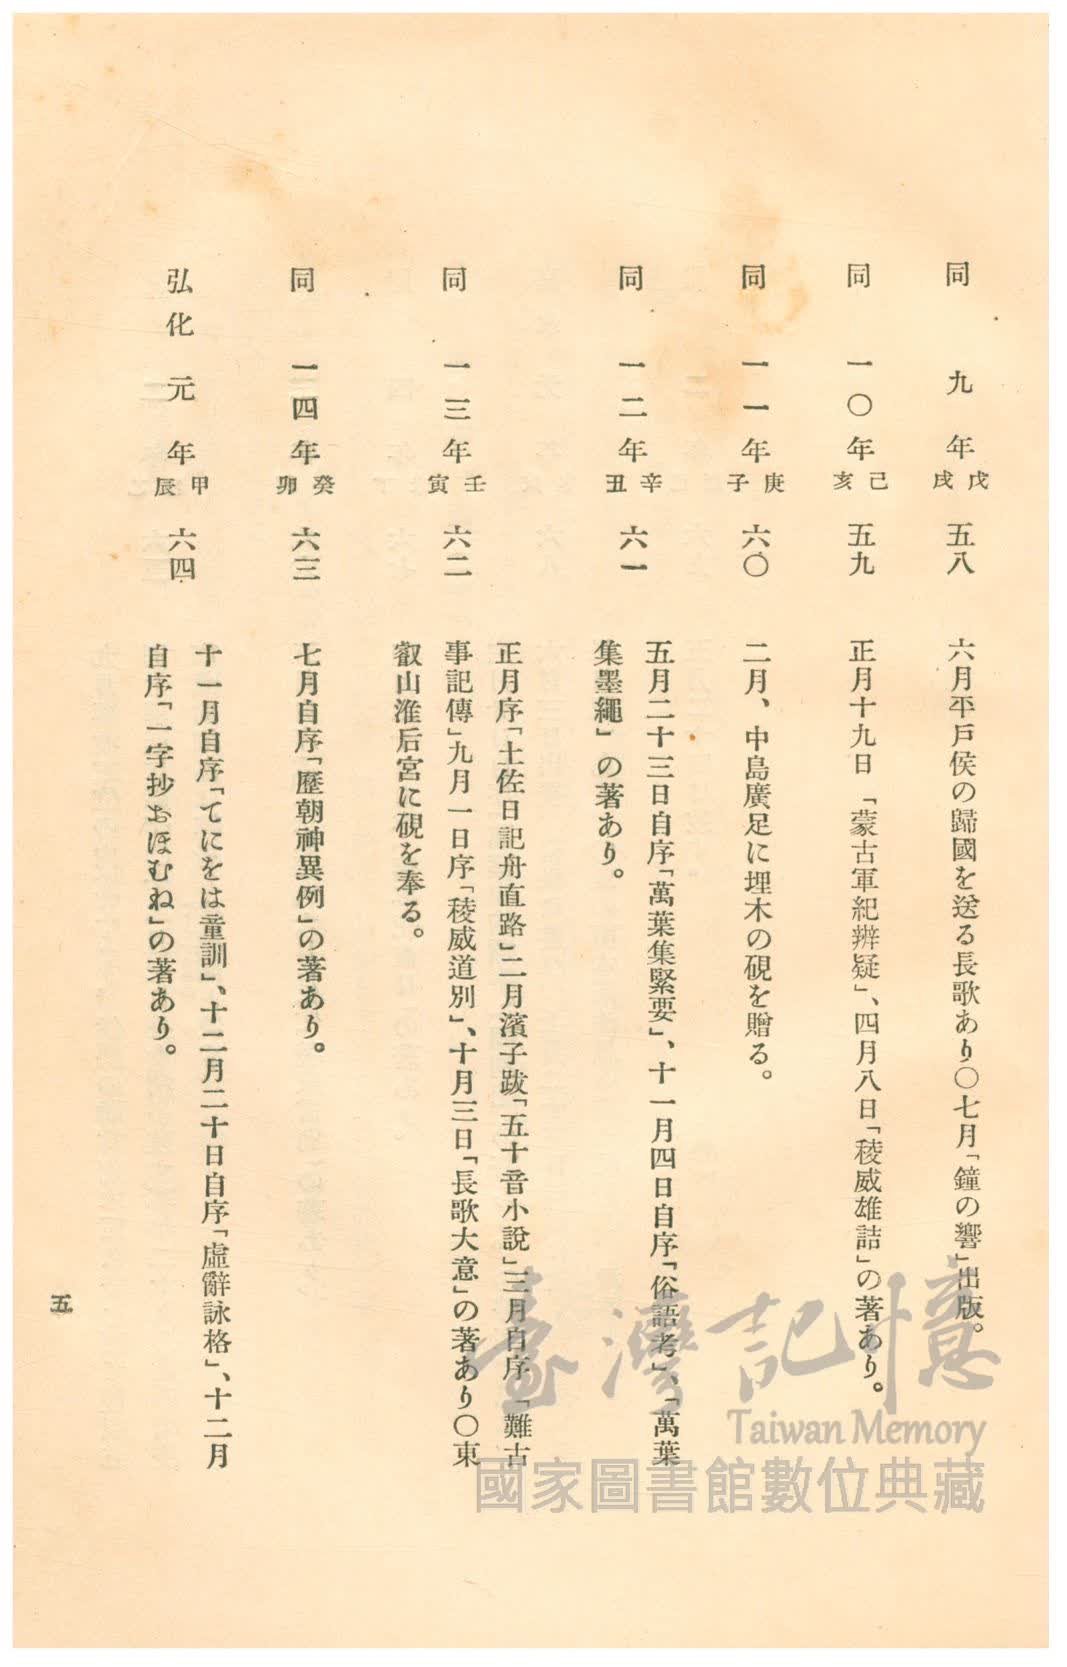 同 九年 戊戌 五八 六月平戸侯の歸國を送る長歌あり〇七月「鐘の響」出版。
同 一〇年 己亥 五九 正月十九日「蒙古軍紀辨疑」、四月八日「稜威雄誥」の著あり。
同 一一年 庚子 六〇 二月、中島廣足に埋木の硯を贈る。
同 一二年 辛丑 六一 五月二十三日自序「萬葉集緊要」、十一月四日自序「俗語考」、「萬葉
集墨繩」の著あり。
同 一三年 壬寅 六二 正月序「土佐日記舟直路」二月濱子跋「五十音小說」三月自序「難古
事記傳」九月一日序「稜威道別」、十月三日「長歌大意」の著あり〇東
叡山淮后宮に硯を奉る。
同 一四年 癸卯 六三 七月自序「歷朝神異例」の著あり。
弘化元年 甲辰 六四 十一月自序「てにをは童訓」、十二月二十日自序「虛辭詠格」、十二月
自序「一字抄おほむね」の著あり。
五
臺灣記憶
Taiwan Memory
國家圖書館數位典藏